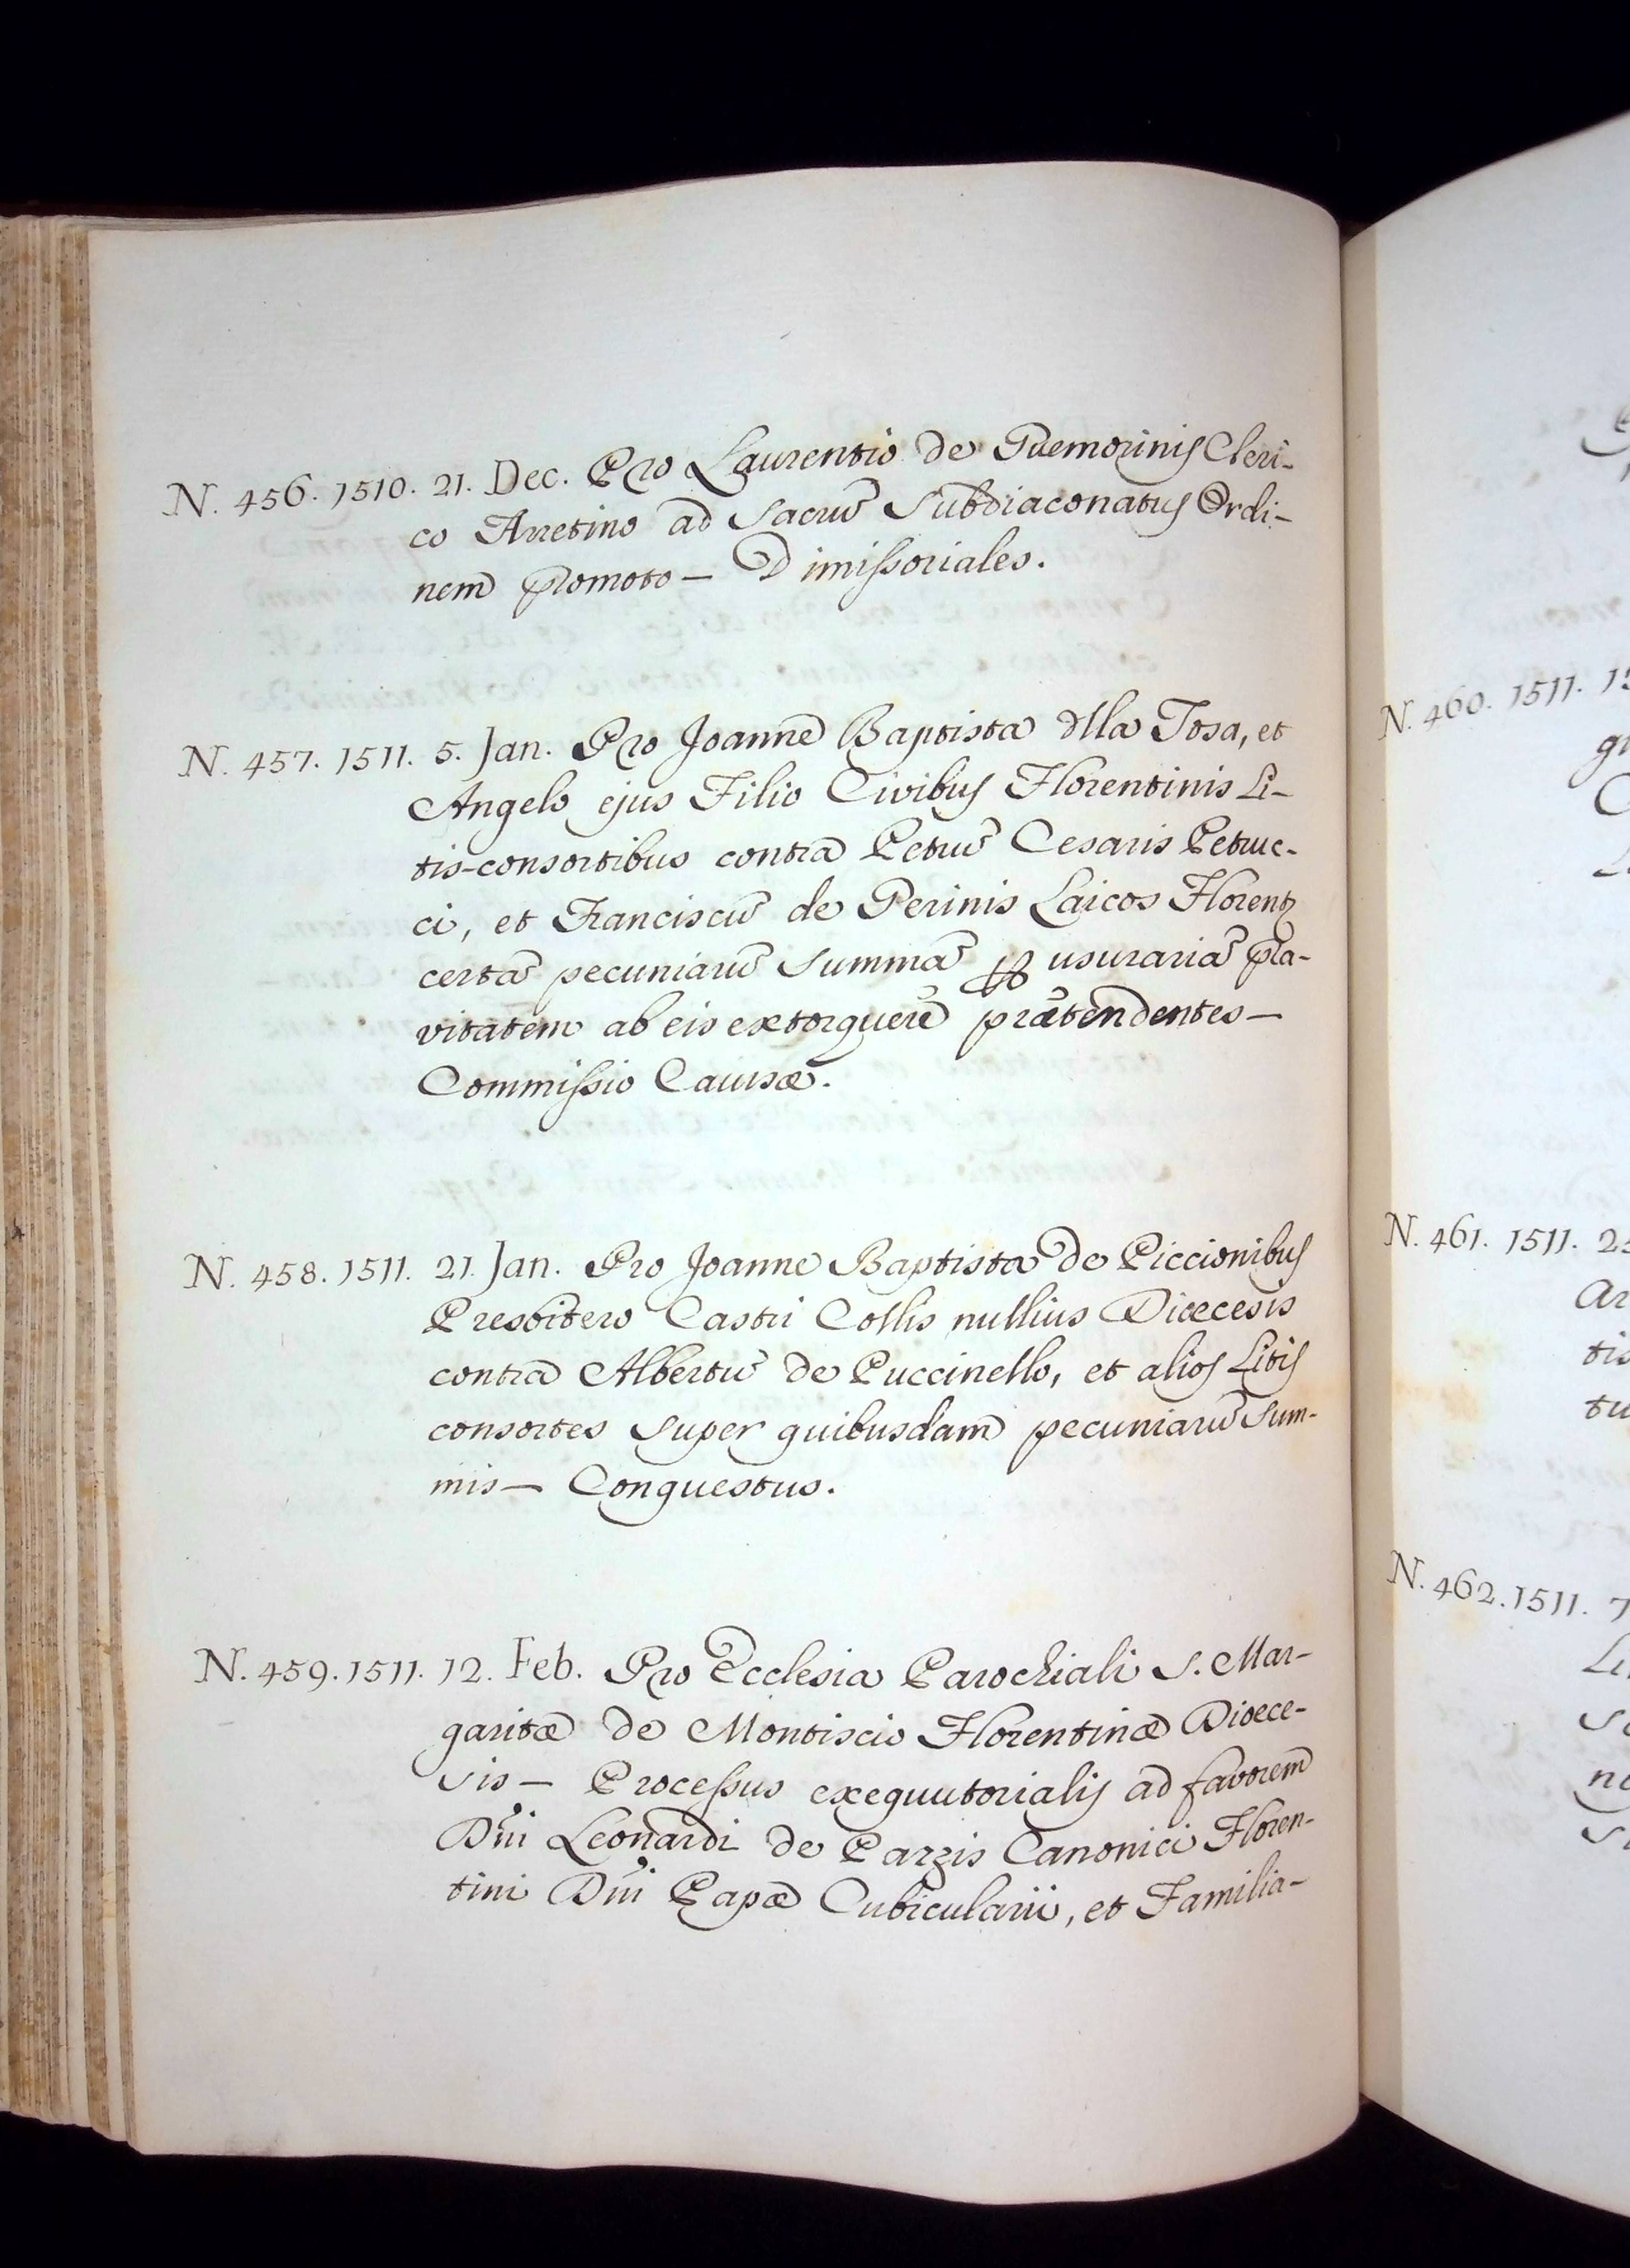 N. 456. 1510. 21. Dec. Pro Laurentio de Guemorinis Cleri-
co Arretino ad Sacrũ Subdiaconatus Ordi-
nem promoto — Dimissoriales.
N. 457. 1511. 5. Jan. Pro Joanne Baptista dlla Tosa, et
Angelo ejus Filio Civibus Florentinis Li-
tis-consortibus contra Petrũ Cesaris Petruc-
ci, et Franciscũ de Perinis Laicos Florent
certã pecuniarũ Summã usurariã pra-
vitatem ab eis extorquere prætendentes —
Commissio Causæ.
N. 458. 1511. 21. Jan. Pro Joanne Baptista de Piccionibus
Presbitero Castri Collis nullius Diœcesis
contra Albertũ de Puccinello, et alios Litis
consortes super quibusdam pecuniarũ Sum-
mis — Conquestus.
N. 459. 1511. 12. Feb. Pro Ecclesia Parochiali S. Mar-
garitæ de Montiscio Florentinæ Dioece-
sis — Processus exequutorialis ad favorem
Dñi Leonardi de Parzis Canonici Floren-
tini Dñi Papæ Cubicularii, et Familia-
N. 460. 1511.
N. 461. 1511.
N. 462. 1511.